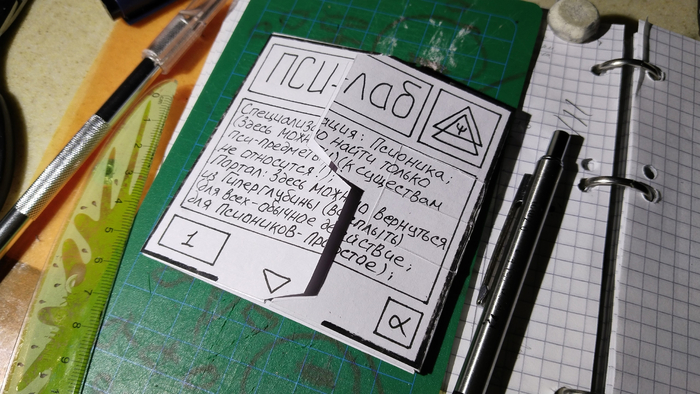 ПСИ-лаб
Ψ
Специализация: Псионика;
(Здесь можно найти только
пси-предметы)(К существам
не относится!)
Портал: Здесь можно вернуться
из Гиперглубины (всплыть)
(для всех-обычное действие;
для псиоников-простое);
1
α